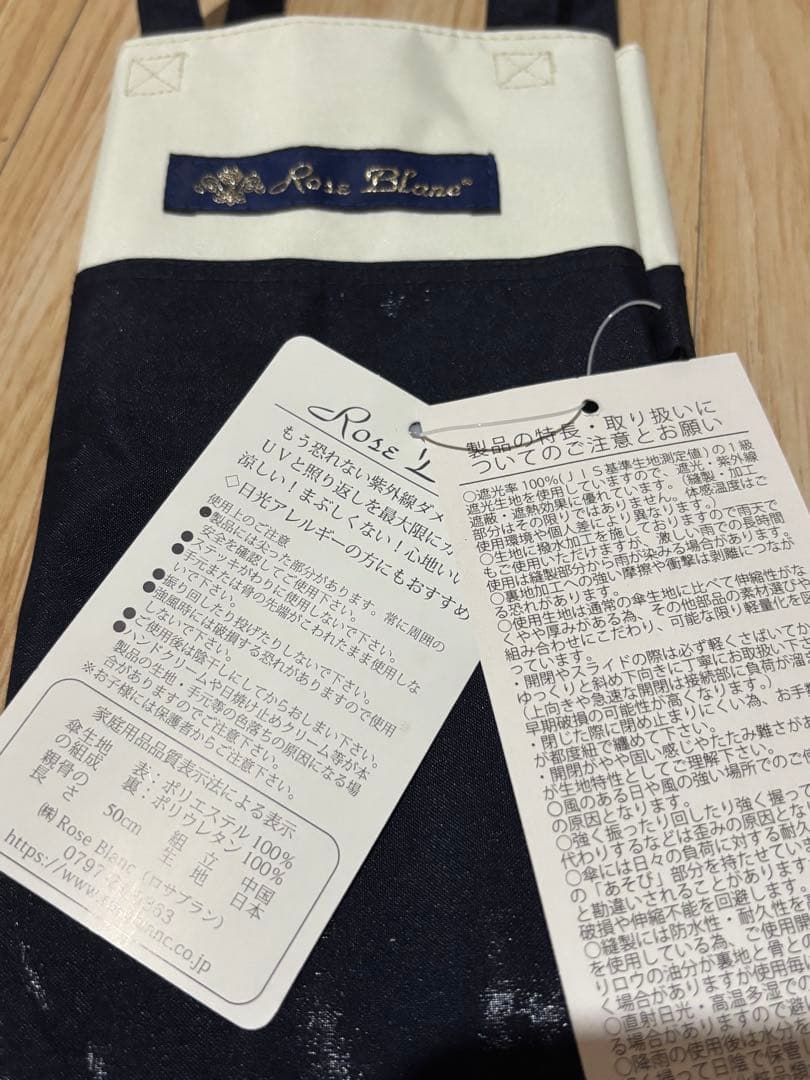 Rose Blanc
Rose
もう恐れない紫外線ダメ
UVと照り返しを最大限にカ
涼しい！まぶしくない！心地いい
◇日光アレルギーの方にもおすすめ
使用上のご注意
●製品には尖った部分があります。常に周囲の
安全を確認してご使用下さい。
●ステッキがわりに使用しないで下さい。
●手元または骨の先端がこわれたまま使用しな
いで下さい。
●振り回したり投げたりしないで下さい。
●強風時には破損する恐れがありますので使用
しないで下さい。
●ご使用後は陰干しにしてからおしまい下さい。
●ハンドクリームや日焼け止めクリーム等が本
製品の生地・手元等の色落ちの原因になる場
合がありますのでご注意下さい。
※お子様には保護者からご注意下さい。
家庭用品品質表示法による表示
傘生地の組成 表：ポリエステル 100%
裏：ポリウレタン 100%
親骨の長さ 50cm 組立 中国
生地 日本
(株) Rose Blanc (ロサブラン)
0797
https://www.
anc.co.jp
製品の特長・取り扱いに
ついてのご注意とお願い
○遮光率100%(JIS基準生地測定値)の1級
遮光生地を使用していますので、遮光・紫外線
遮蔽・遮熱効果に優れています。(縫製・加工
部分はその限りではありません。体感温度はご
使用環境や個人差により異なります。)
○生地に撥水加工を施しておりますので雨天で
もご使用いただけますが、激しい雨での長時間
使用は縫製部分から雨が染みる場合があります。
○裏地加工への強い摩擦や衝撃は剥離につなが
る恐れがあります。
○使用生地は通常の傘生地に比べて伸縮性がな
くやや厚みがある為、その他部品の素材選びや
組み合わせにこだわり、可能な限り軽量化を図
っています。
・開閉やスライドの際は必ず軽くさばいてお
ゆっくりと斜め下向きに丁寧にお取扱い下さ
(上向きや急速な開閉は接続部に負荷が溜ま
早期破損の可能性が高くなります。)
・閉じた際に閉め止まりにくい為、お手数
が都度紐で纏めて下さい。
・開閉がやや固い感じやたたみ難さがあ
が生地特性としてご理解下さい。
○風のある日や風の強い場所でのご使
の原因となります。
○強く振ったり回したり強く握って
代わりするなどは歪みの原因とな
○傘には日々の負荷に対する耐久
の「あそび」部分を持たせてい
と勘違いされることがあります
破損や伸縮不能を回避します。
○縫製には防水性・耐久性を
を使用している為、ご使用開
リロウの油分が裏地と骨と
く場合がありますが使用毎
○直射日光・高温多湿での
る場合がありますので避
・降雨の使用後は水分を
く張って日陰で保管